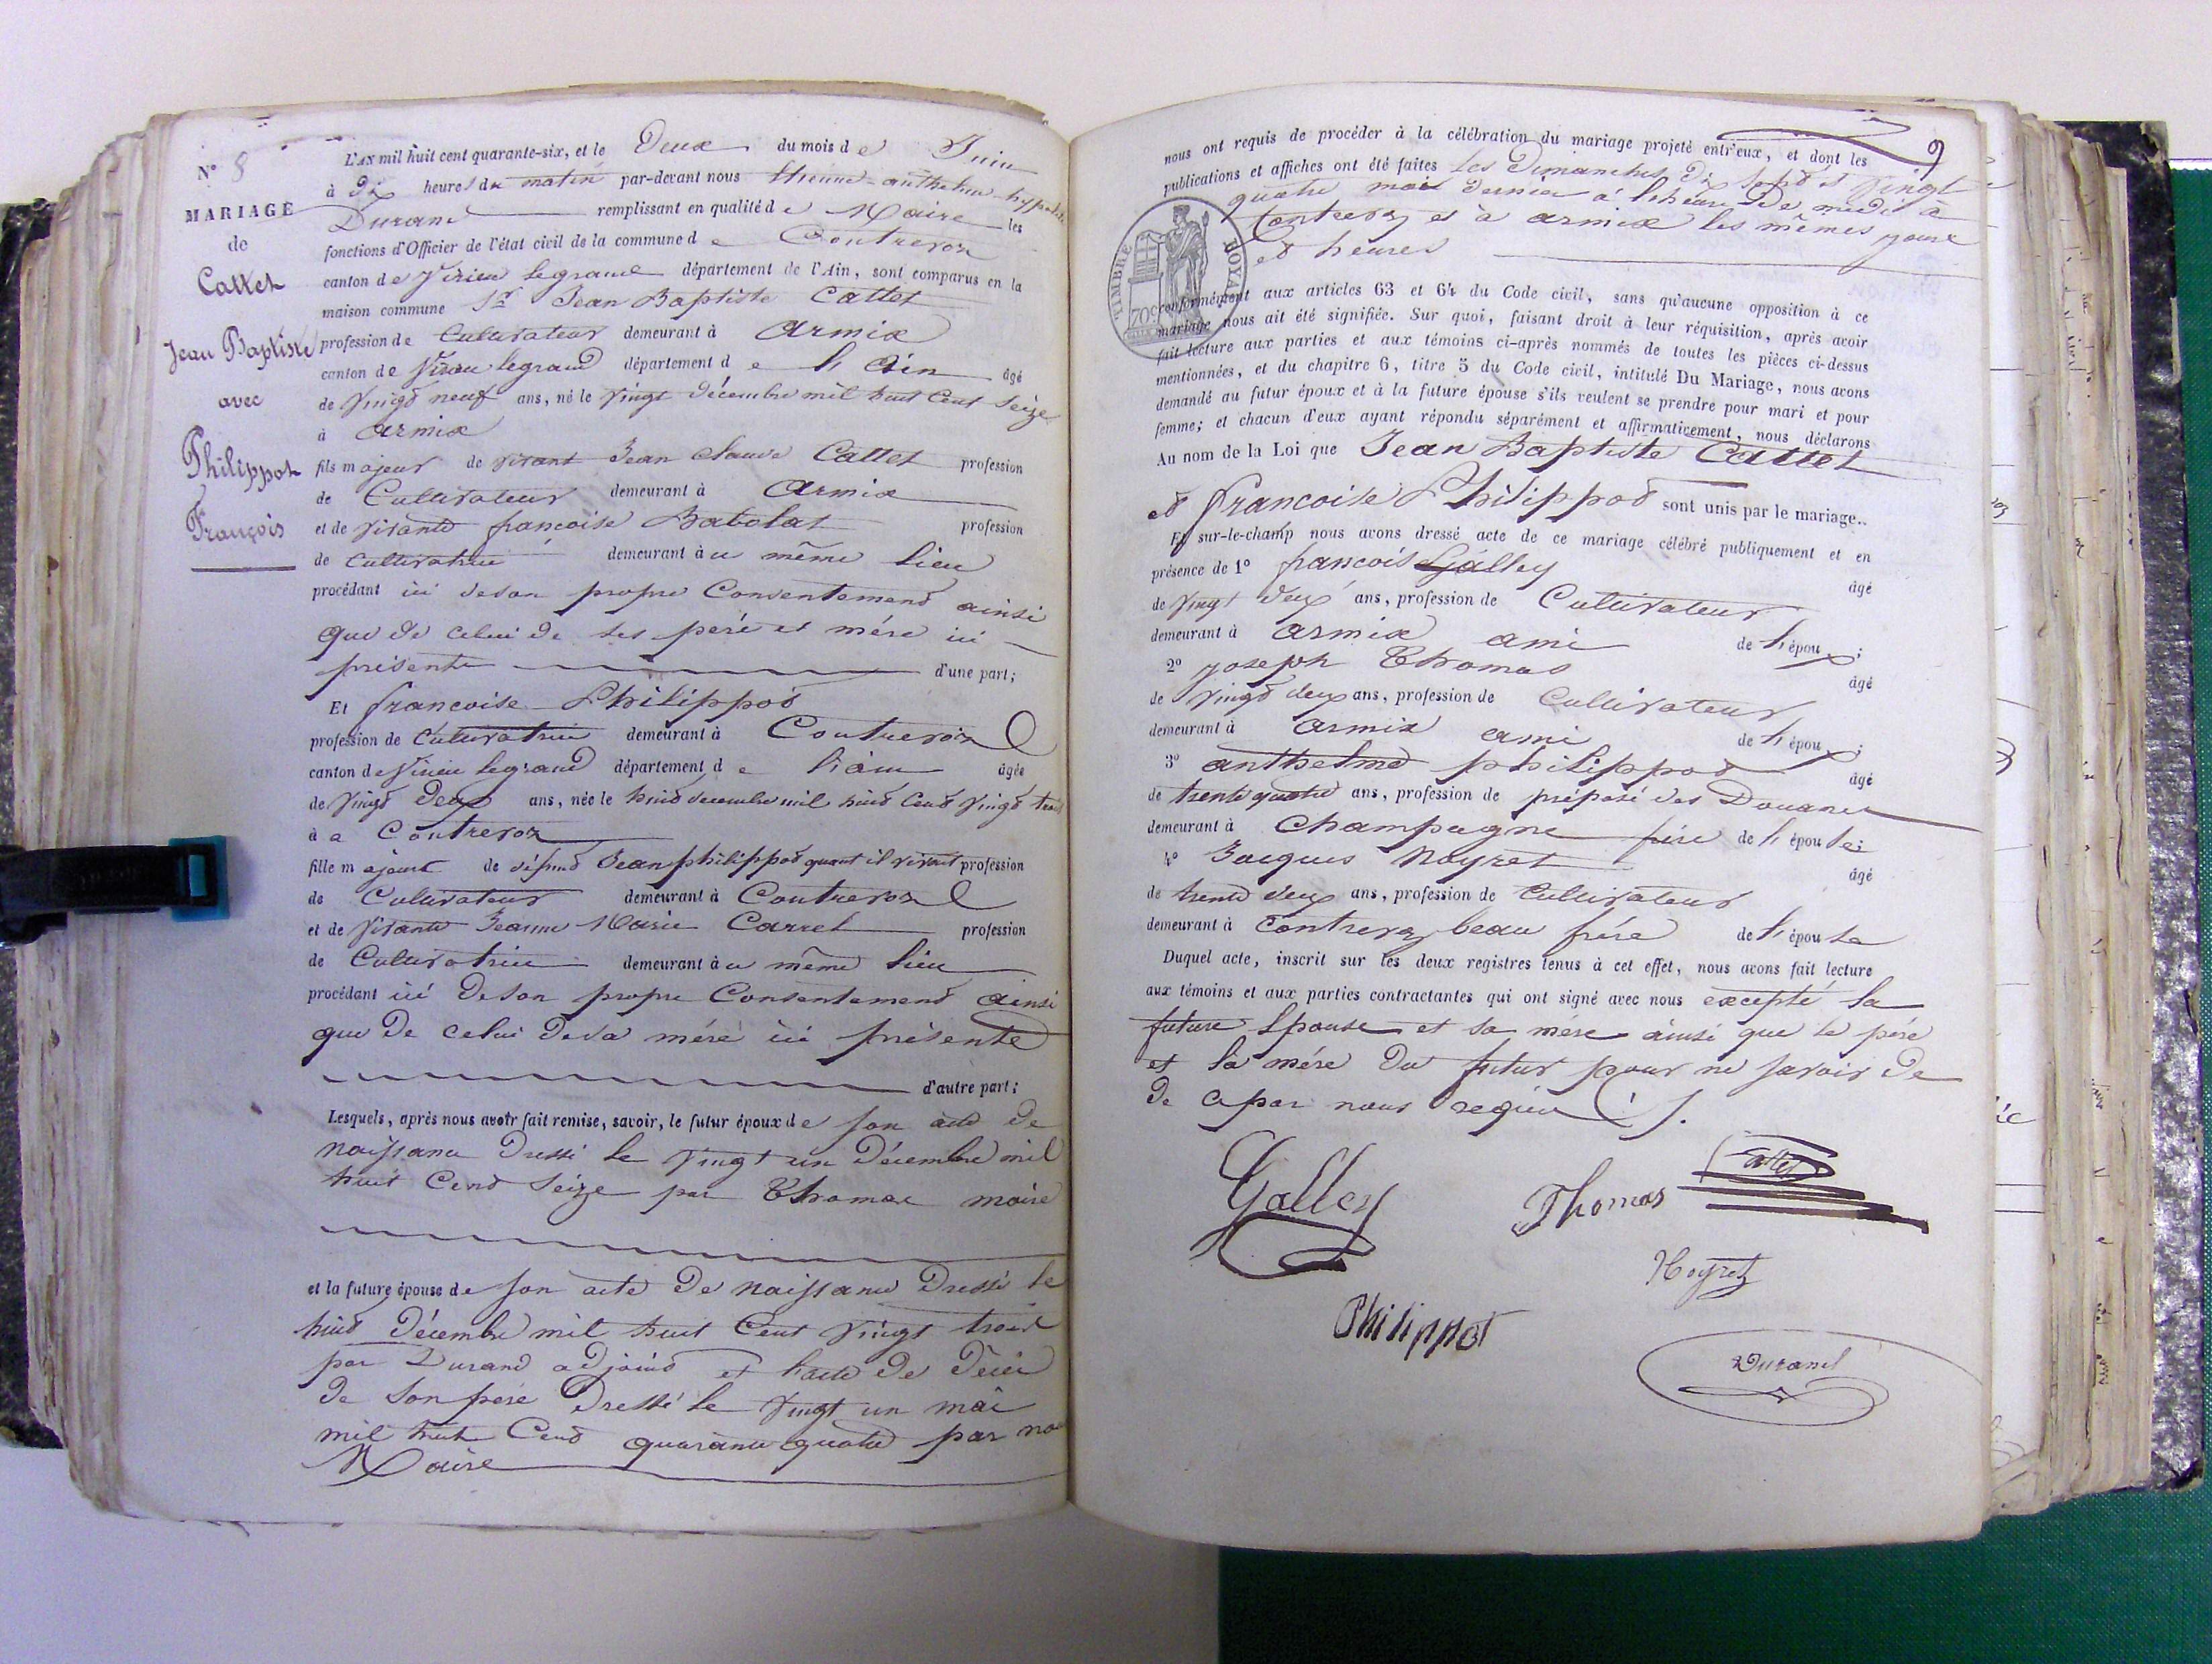 N° 8
MARIAGE
de
Cattet
Jean Baptiste
avec
Philippot
François
L'AN mil huit cent quarante-six, et le Deux du mois de Juin
à Dix heures du matin par-devant nous Etienne-anthelme-hyppolite
Durand remplissant en qualité de Maire les
fonctions d'Officier de l'état civil de la commune de Contrevoz
canton de Virieu legrand département de l'Ain, sont comparus en la
maison commune Sr Jean Baptiste Cattet
profession de Cultivateur demeurant à Armix
canton de Virieu legrand département de l'Ain âgé
de Vingt neuf ans, né le Vingt Décembre mil huit Cent Seize
à Armix
fils majeur de vivant Jean Claude Cattet profession
de Cultivateur demeurant à Armix
et de vivante francoise Babolat profession
de Cultivatrice demeurant à u même lieu
procédant ici deson propre Consentement ainsi
que de celui de ses père et mère ici
présente d'une part;
Et francoise Philippot
profession de Cultivatrice demeurant à Contrevoz
canton de Virieu legrand département de l'ain âgée
de Vingt Deux ans, née le huit decembre mil huit Cent Vingt trois
à a Contrevoz
fille majeure de défunt Jean philippot quant il vivait profession
de Cultivateur demeurant à Contrevoz
et de Vivante Jeanne Marie Carrel profession
de Cultivatrice demeurant à u même lieu
procédant ici Deson propre Consentement ainsi
que De celui Desa mére ici présente
d'autre part;
Lesquels, après nous avoir fait remise, savoir, le futur époux de son acte De
naissance Dressé le Vingt un Décembre mil
huit Cent Seize par Thomas maire
et la future épouse de son acte De naissance Dressé le
huit Décembre mil huit Cent Vingt trois
par Durand adjoint et l'acte De Décès
De son père Dressé le Vingt un mai
mil huit Cent quarante quatre par nous
Maire
9
nous ont requis de procéder à la célébration du mariage projeté entr'eux, et dont les
publications et affiches ont été faites les Dimanches Dix sept et Vingt
quatre mai dernier à l'heure De midi à
Contrevoz et à armix les mêmes jours
et heures
TIMBRE ROYAL
70c
conformément aux articles 63 et 64 du Code civil, sans qu'aucune opposition à ce
mariage nous ait été signifiée. Sur quoi, faisant droit à leur réquisition, après avoir
fait lecture aux parties et aux témoins ci-après nommés de toutes les pièces ci-dessus
mentionnées, et du chapitre 6, titre 5 du Code civil, intitulé Du Mariage, nous avons
demandé au futur époux et à la future épouse s'ils veulent se prendre pour mari et pour
femme; et chacun d'eux ayant répondu séparément et affirmativement, nous déclarons
Au nom de la Loi que Jean Baptiste Cattet
et francoise Philippot sont unis par le mariage..
Et sur-le-champ nous avons dressé acte de ce mariage célébré publiquement et en
présence de 1° francois Galley âgé
de Vingt deux ans, profession de Cultivateur
demeurant à Armix ami de l'époux;
2° joseph Thomas âgé
de Vingt deux ans, profession de Cultivateur
demeurant à Armix ami de l'époux;
3° anthelme philippot âgé
de trente quatre ans, profession de préposé des Douanes
demeurant à Champagne frère de l'épouse;
4° Jacques Noyret âgé
de trente deux ans, profession de Cultivateur
demeurant à Contrevoz beau frére de l'épouse
Duquel acte, inscrit sur les deux registres tenus à cet effet, nous avons fait lecture
aux témoins et aux parties contractantes qui ont signé avec nous excepté la
future Epouse et sa mére ainsi que le père
et la mére Du futur pour ne savoir De
De a par nous requis
Galley
Thomas
Cattet
Noyret
Philippot
Durand